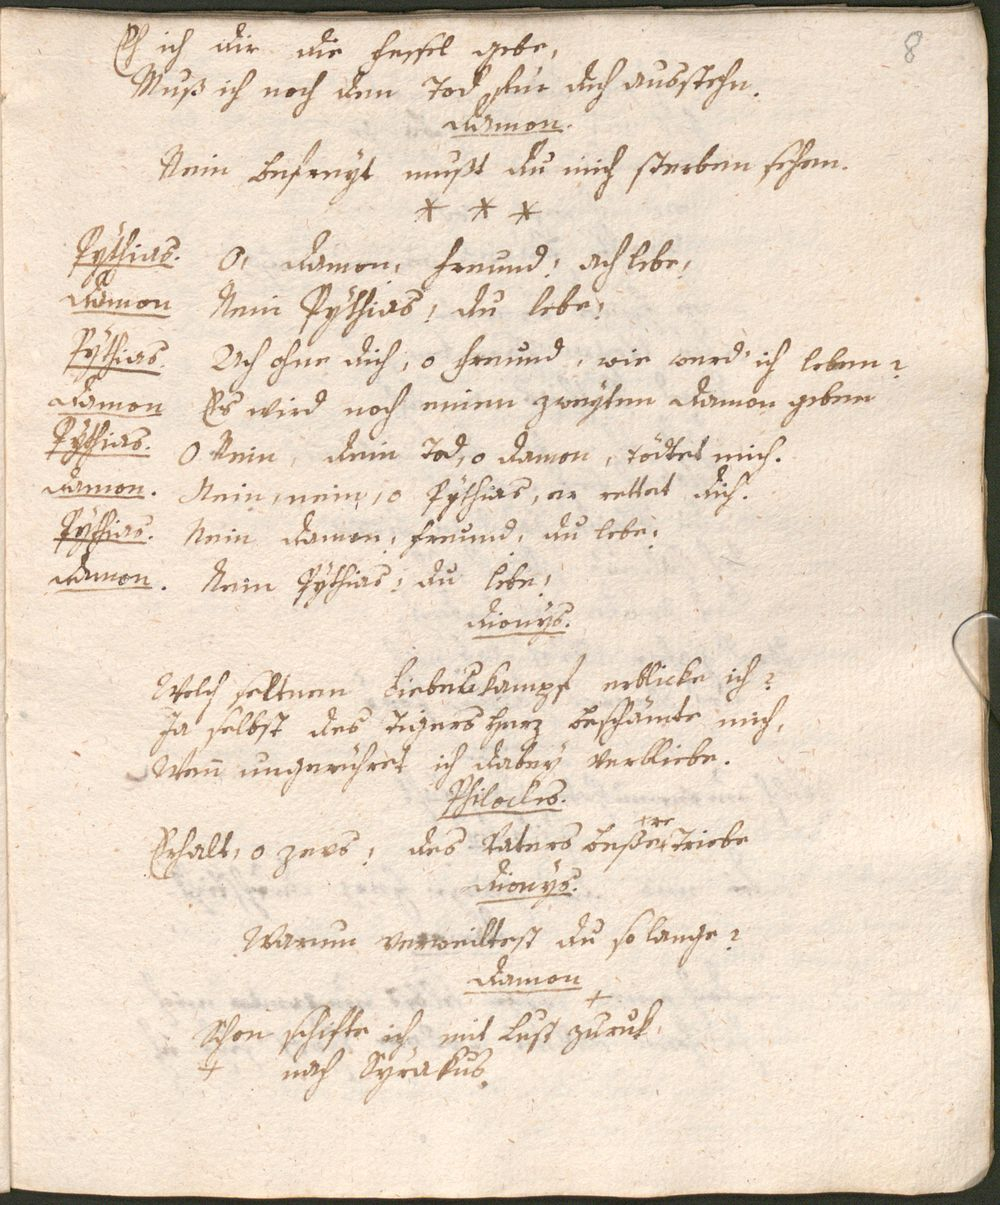 8
Eh ich dir die Fessel gebe,
Muß ich noch den Tod für dich ausstehn.
Damon.
Nein befreyt mußt du mich sterben sehen.
* * *
Pÿthias. O, Damon, Freund, ach lebe,
Damon Nein Pÿthias, du lebe,
Pÿthias. Ach ohne dich, o Freund, wie werd' ich leben?
Damon Es wird noch einen zweyten Damon geben
Pÿthias. O Nein, dein Tod, o Damon, tödtet mich.
Damon. Nein, nein, o Pÿthias, er rettet dich.
Pÿthias. Nein Damon, Freund, du lebe,
Damon. Nein Pÿthias, du lebe,
Dionÿs.
Welch seltnen Liebeskampf erblicke ich?
Ja selbst des Tigers Herz beschämte mich,
Wenn ungerühret ich dabey verbliebe.
Philocles.
Erhalt, o Zevs, des Vaters beßre Triebe
Dionÿs.
Warum verweiltest du so lange?
Damon
Schon schifte ich mit Lust zuruk +
+ nach Sÿrakus,